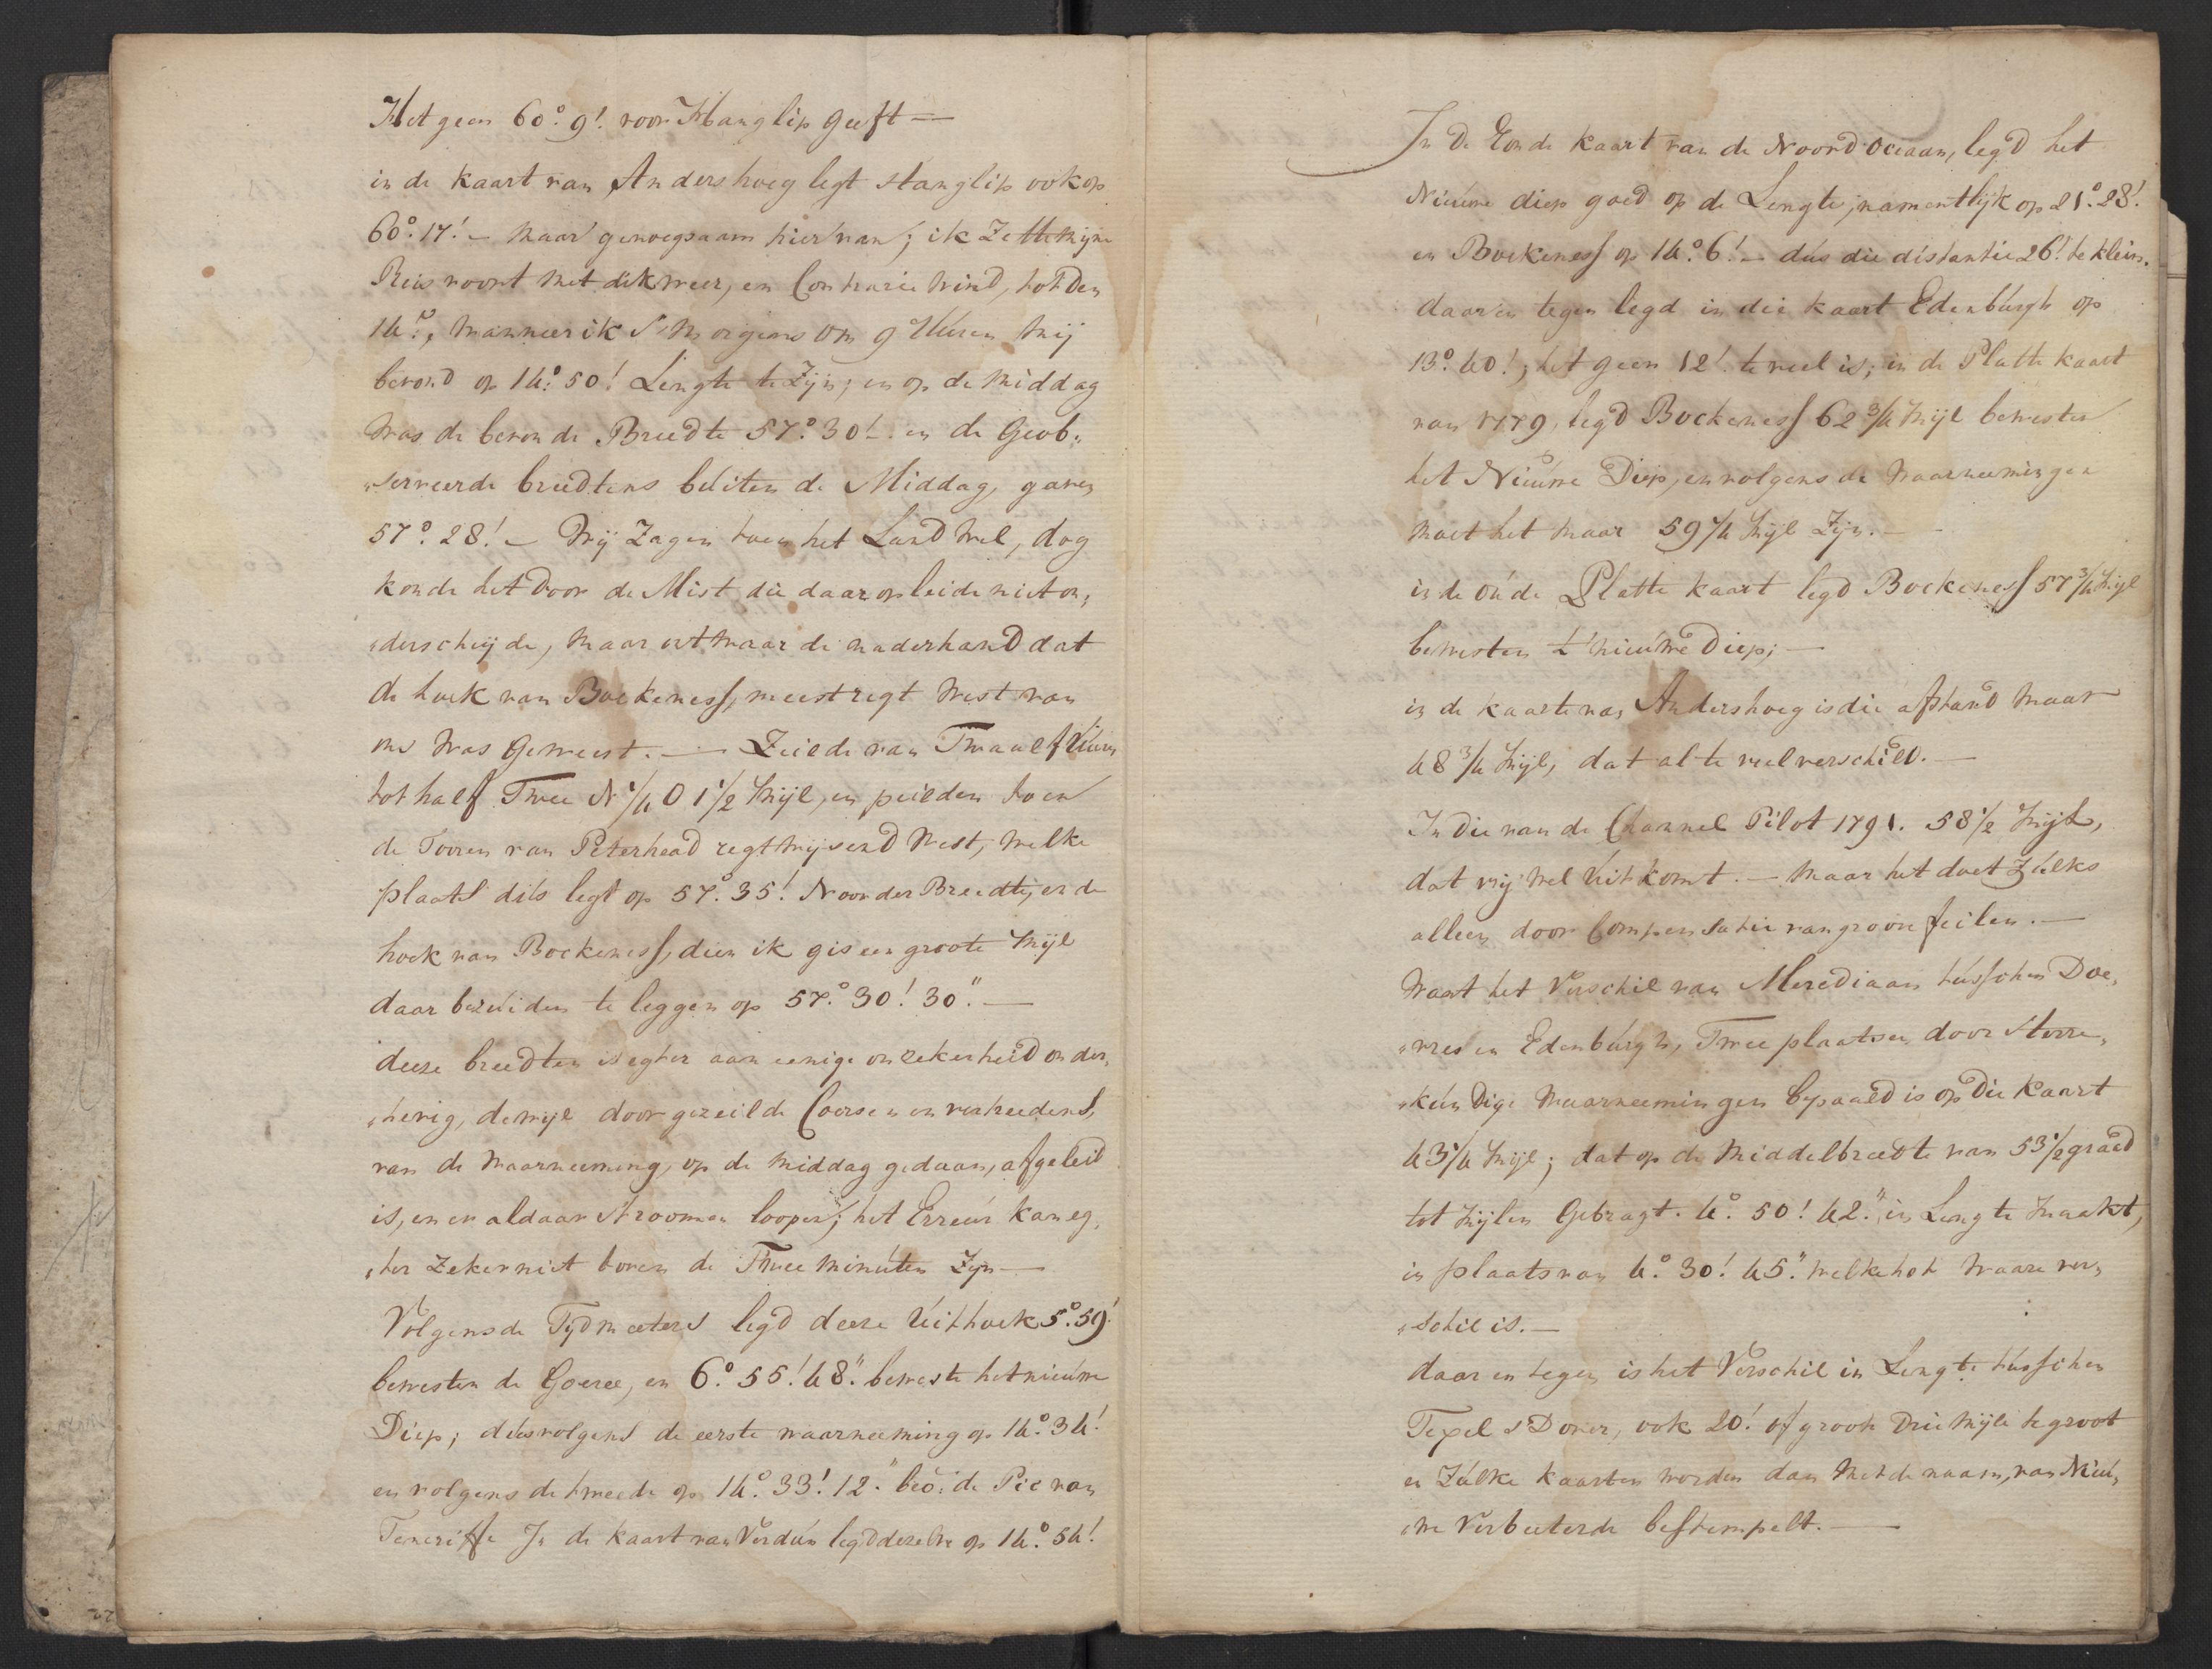 Het geen 60°. 9!. voor Hanglip geeft —
in de kaart van Andershoeg legt Hanglip ook op
60°. 17!. — Maar genoegsaam hier van; ik Zette Mijne
Reis voort Met dik weer, en Contrarie Wind, tot den
14.e, Wanneer ik S' Morgens Om 9 Uúren Mij
bevond op 14°. 50! Lengte te Zijn; en op de Middag
Was de bevonde Breedte 57°. 30!. en de Geob„
„serveerde breedtens búiten de Middag, gaven
57°. 28!. — Wij Zagen toen het Land Wel, dog
konde het door de Mist die daar op leide niet on„
„derscheijde, Maar ontwaarde naderhand dat
de hoek van Bockeness, meest regt West van
ons Was Geweest. — Zeilde van Twaalf Uúren
tot half Twee N 1/4 O 1 1/2 Mijl, en peilden toen
de Tooren van Peterhead regtwijsend West, Welke
plaats dús legt op 57°. 35! Noorder Breedte, en de
hoek van Bockeness, dien ik gis een groote Mijl
daar bezúiden te leggen op 57.° 30! 30." —
deeze breedten is egter aan eenige onzekerheid onder„
„hevig, dewijl door gezeilde Coersen en verheedens,
van de Waarneeming, op de Middag gedaan, afgeleid
is, en er aldaar Stroomen loopen; het Erreúr kan eg„
„ter Zeker niet boven de Twee Minúten Zijn —
Volgens de Tijdmeeters legd deeze Uithoek 5°. 59!
bewesten de Goeree, en 6°. 55! 48". beweste het nieúwe
Diep; dús volgens de eerste waarneeming op 14°. 34!
en volgens de tweede op 14°. 33! 12." beo: de Pic van
Teneriffe In de kaart van Verdún legd dezelve op 14°. 54!
In de Ronde kaart van de Noord Oceaan, legd het
Nieúwe diep goed op de Lengte, namentlijk op 21°. 28!
en Bockeness op 14°. 6! — dús die distantie 26! te klein.
daar en tegen legd in die kaart Edenbúrgh op
13°. 40!; het geen 12! te veel is; in de Platte kaart
van 1779, legd Bockeness 62 3/4 Mijl bewesten
het Nieúwe Diep, en volgens de Waarneemingen
Moet het Maar 59 1/4 Mijl Zijn. —
in de oúde Platte kaart legd Bockeness 57 3/4 Mijl
bewesten t' nieúwe Diep; —
in de kaarte van Andershoeg is die afstand Maar
48 3/4 Mijl, dat al te veel verschild. —
In die van de Channel Pilot 1791. 58 1/2 Mijl,
dat vrij Wel úitkomt. — Maar het doet Zúlks
alleen door Compensatie van groove feilen. —
Want het Verschil van Meridiaan tússchen Doe„
„vres en Edenbúrgh, Twee plaatsen door Sterre„
„kúndige Waarneemingen bepaald is op die Kaart
43 1/4 Mijl; dat op de Middelbreedte van 53 1/2 graad
tot Mijlen Gebragt. 4°. 50! 42.", in Lengte Maakt,
in plaats van 4°. 30! 45." Welke het Waare ver„
„schil is. —
daar en tegen is het Verschil in Lengte tússchen
Texel & Dover, ook 20! of groote drie Mijle te groot
en Zúlke kaarten worden dan Met de naam, van Nieú„
„we Verbeeterde bestempelt. —